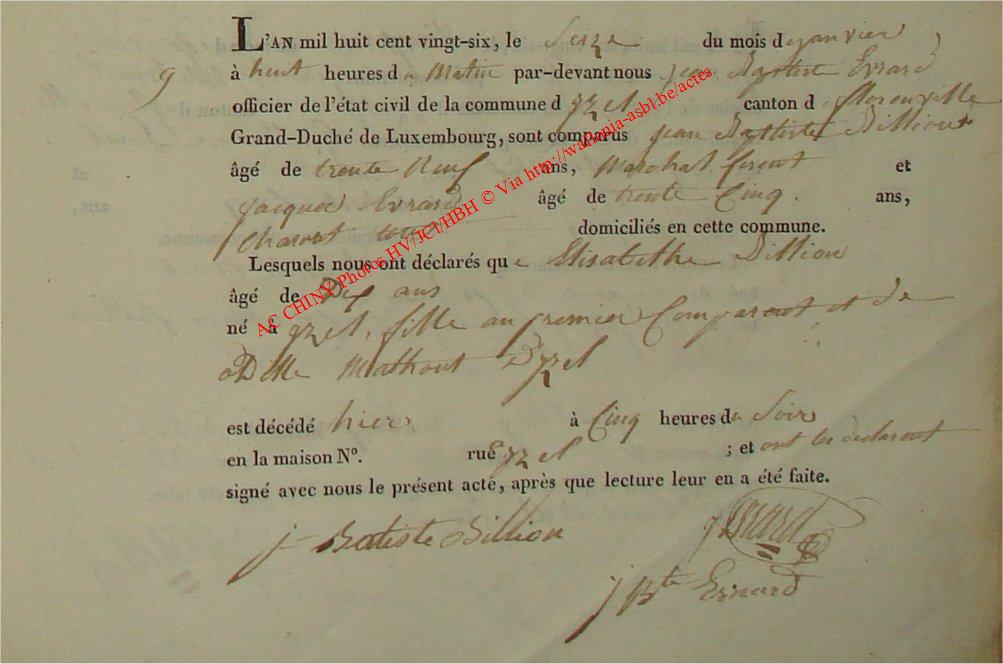 L'AN mil huit cent vingt-six, le Seize du mois d janvier
9 à huit heures du Matin par-devant nous jean Baptiste Evrard
officier de l'état civil de la commune d yzel canton d florenville
Grand-Duché de Luxembourg, sont comparus jean Battiste Billion
âgé de trente Neuf ans, Marchal ferant et
jacques Evrard âgé de trente Cinq ans,
domiciliés en cette commune.
Lesquels nous ont déclarés que Elisabethe Billion
âgé de Dix ans
né à yzel, fille au premier Comparant et de
Odelle Mathout D'yzel
est décédé hier à Cinq heures du Soir
en la maison N°. rue yzel ; et ont les déclarant
signé avec nous le présent acte, après que lecture leur en a été faite.
j Batiste Billion j Evrard
j Bte Evrard
AC CHINY Photos HV/JCI/HBH © Via http://wallonia-asbl.be/actes